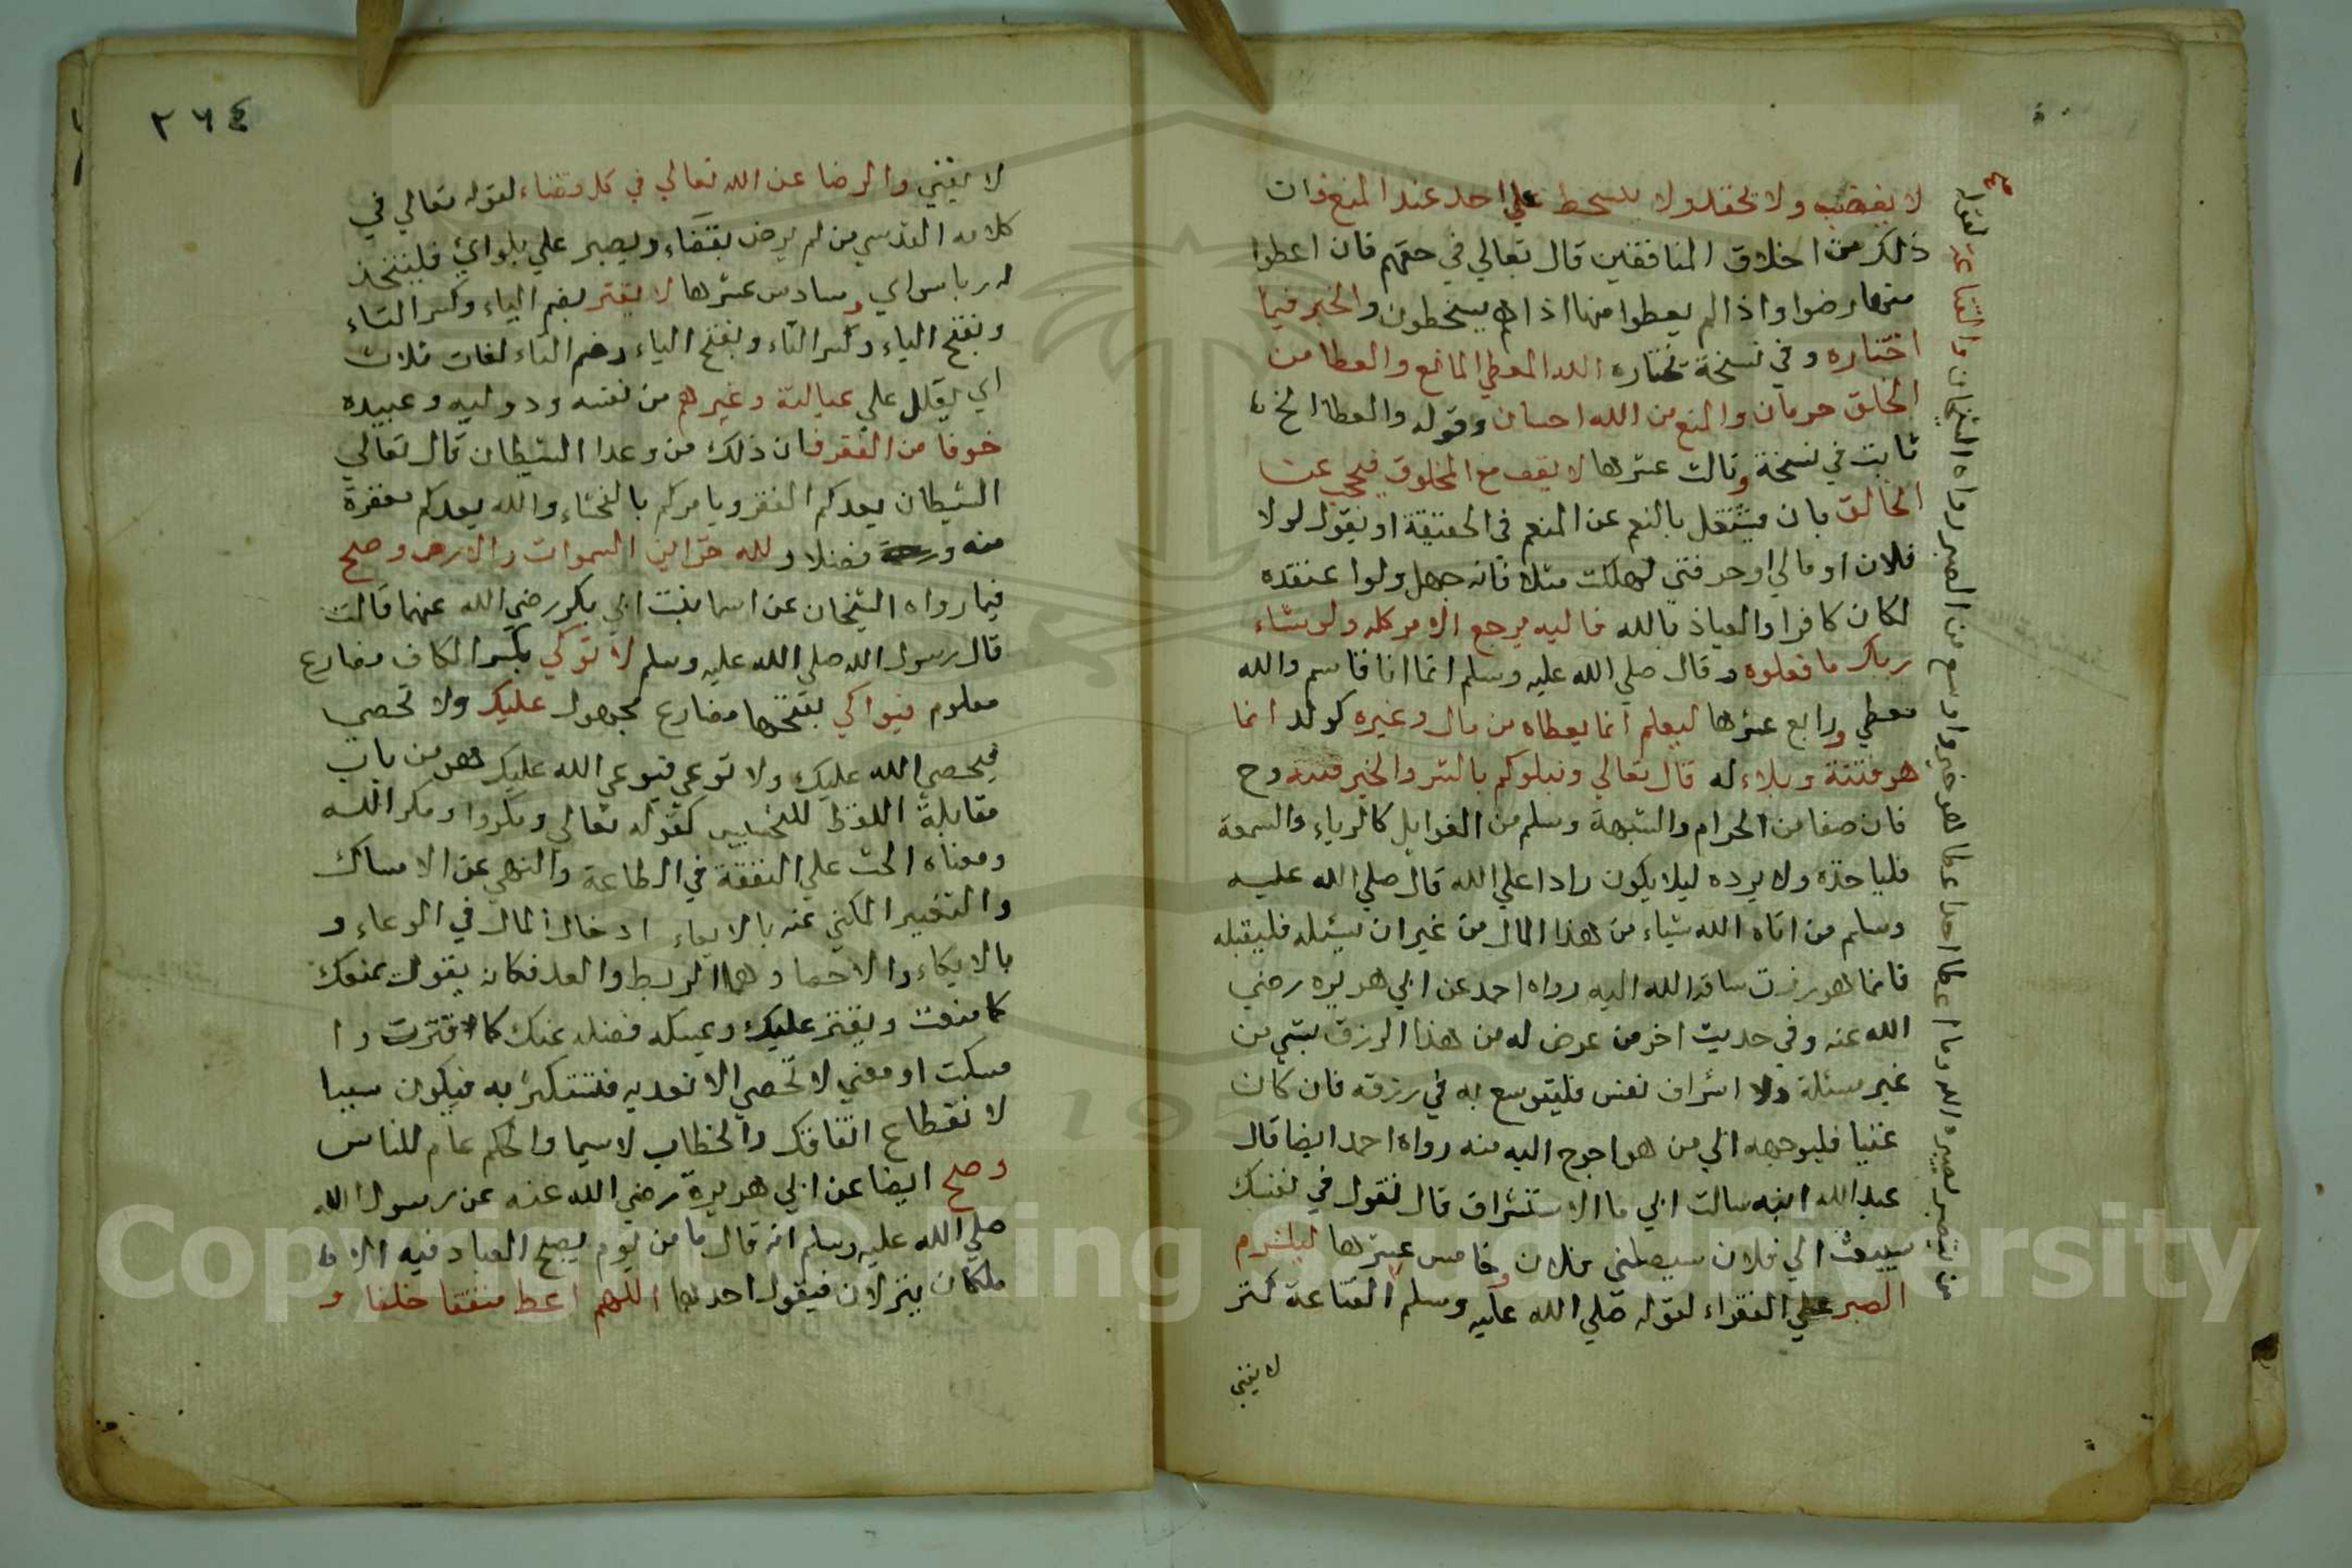 لا يغضب ولا تحقد ولا يسخط علي احد عند المنع فان
ذلك من اخلاق المنافقين قال تعالي في حقهم فان اعطوا
منها رضوا واذا لم يعطوا منها اذا هم يسخطون والخير فيما
اختاره وفي نسخة تختاره الله المعطي المانع والعطا من
الخلق حرمان والمنع من الله احسان وقوله والعطا الخ
ثابت في نسخة وثالث عشرها لا يقف مع المخلوق فيحجب عن
الخالق بان يشتغل بالنعم عن المنعم في الحقيقة او يقول لولا
فلان او مالي او حرفتي لهلكت مثلا فانه جهل ولوا عتقده
لكان كافرا والعياذ بالله فاليه يرجع الامر كله ولو شاء
ربك ما فعلوه وقال صلي الله عليه وسلم انما انا قاسم والله
معطي ورابع عشرها ليعلم انما يعطاه من مال وغيره كولد انما
هو فتنة وبلاء له قال تعالي ونبلوكم بالشر والخير فتنة وح
فان صفا من الحرام والشبهة وسلم من الغوايل كالرياء والسمعة
فلياخذه ولا يرده ليلا يكون رادا علي الله قال صلي الله عليه
وسلم من اتاه الله شياء من هذا المال من غير ان يسئله فليقبله
فانما هو رزق ساقه الله اليه رواه احمد عن ابي هريره رضي
الله عنه وفي حديث اخر من عرض له من هذا الرزق بشي من
غير مسئلة ولا اشراف نفس فليتوسع به في رزقه فان كان
غنيا فليوجهه الي من هو احوج اليه منه رواه احمد ايضا قال
عبد الله ابنه سالت ابي ما الاستشراف قال تقول في نفسك
سيبعث الي فلان سيصلني فلان وخامس عشرها ليلتزم
الصبر علي الفقراء لقوله صلي الله عليه وسلم القناعة كنز
لا يفني
من يتصبر يصبره الله وما اعطا احدا عطا هو خير واوسع من الصبر رواه الشيخان والقناعة لقوله
صح
٢٦٤
لا يفني والرضا عن الله تعالي في كل قضاء لقوله تعالي في
كلامه القدسي من لم يرض بقضاء ويصبر علي بلوائ فليتخذ
له ربا سواي وسادس عشرها لا يقتر بضم الياء وكسر التاء
وبفتح الياء وكسر التاء وبفتح الياء وضم التاء لغات ثلاث
اي يقلل علي عيالته وغيرهم من نفسه ودوليه وعبيده
خوفا من الفقر فان ذلك من وعد الشيطان قال تعالي
الشيطان يعدكم الفقر ويامركم بالفحشاء والله يعدكم مغفرة
منه وفضلا ولله خزاين السموات والارض وصح
فيما رواه الشيخان عن اسما بنت ابي بكر رضي الله عنهما قالت
قال رسول الله صلي الله عليه وسلم لا توكي بكسر الكاف مضارع
معلوم فيواكي بفتحها مضارع مجهول عليك ولا تحصي
فيحصي الله عليك ولا توعي فيوعي الله عليك هو من باب
مقابلة اللفظ للتجنيس كقوله تعالي ومكروا ومكر الله
ومعناه الحث علي النفقة في الطاعة والنهي عن الامساك
والتقتير المكني عنه بالايعاء ادخال المال في الوعاء و
بالايكاء والاحصا وهما الربط والعد فكانه يقول يمنعك
كما منعت ويقتر عليك ويمسك فضله عنك كما قترت وا
مسكت او معني لا تحصي الا تعديه فتستكثر به فيكون سببا
لانقطاع انفاقك والخطاب لاسيما والحكم عام للناس
وصح ايضا عن ابي هريرة رضي الله عنه عن رسول الله
صلي الله عليه وسلم انه قال ما من يوم يصبح العباد فيه الا
ملكان ينزلان فيقول احدهما اللهم اعط منفقا خلفا و